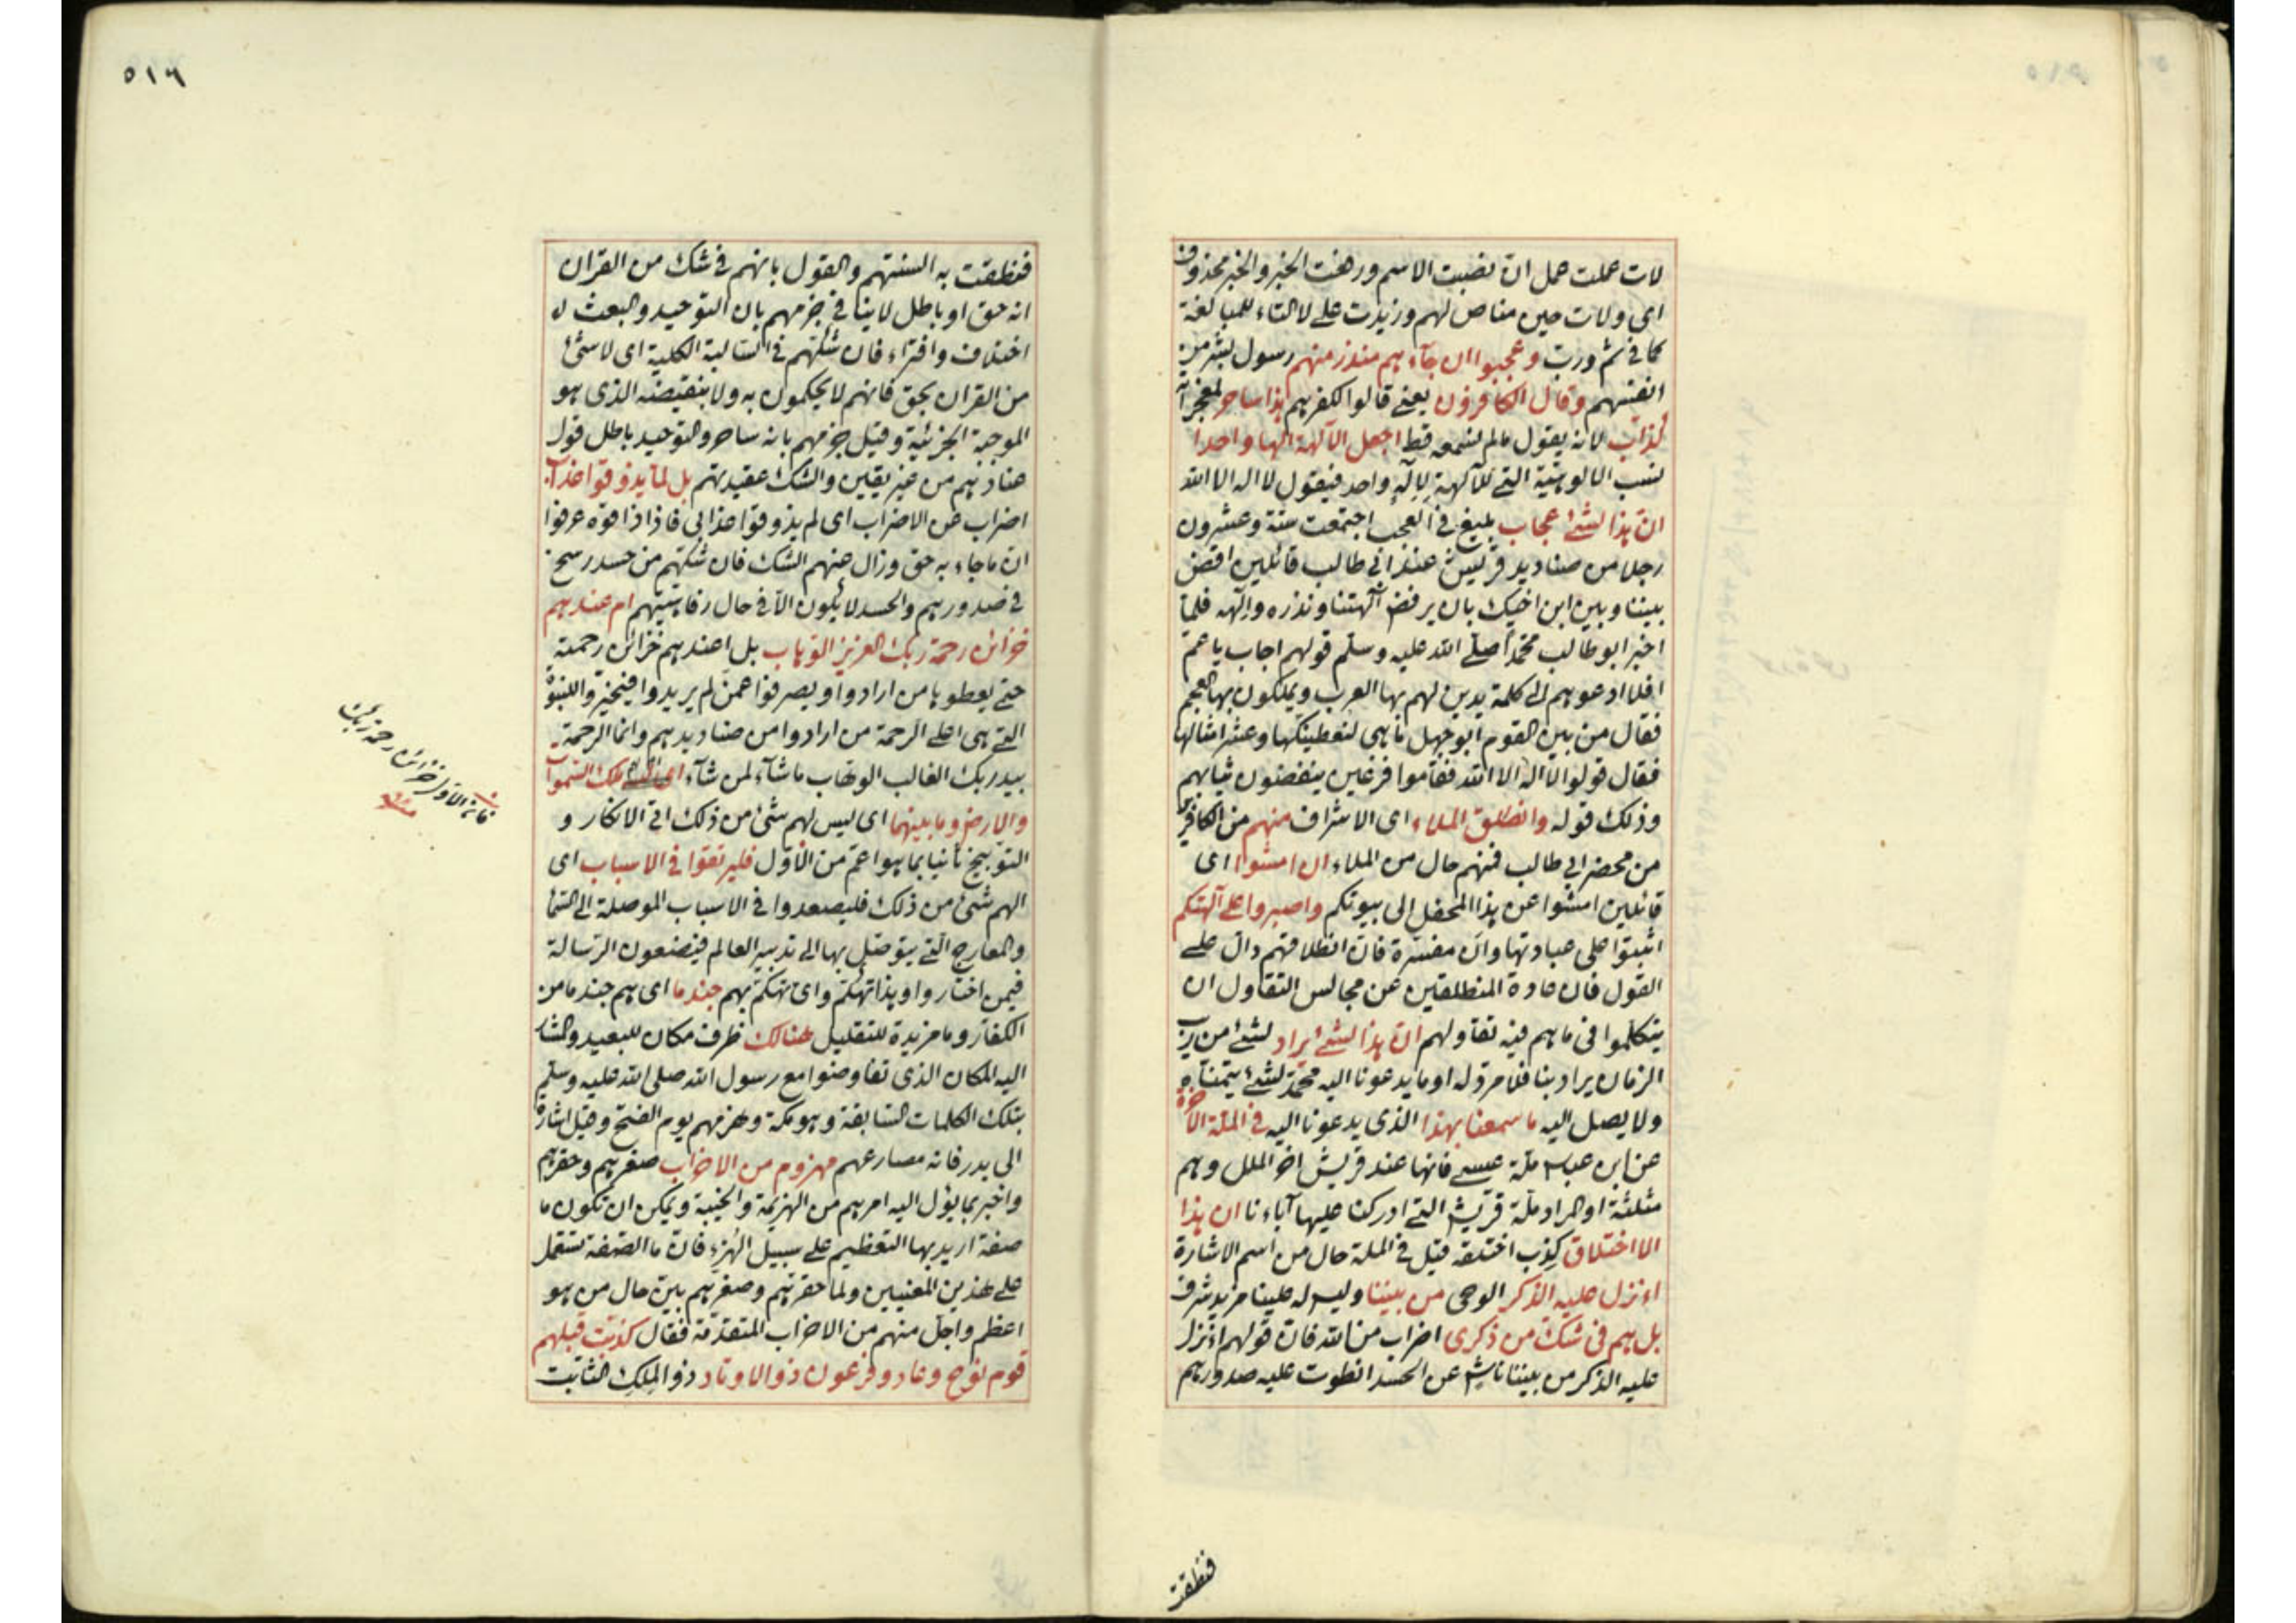 لات عملت عمل ان نصبت الاسم ورفعت الخبر والخبر محذوف
اى ولات حين مناص لهم وزيدت على لا التاء للمبالغة
كما فى ثم ورب وعجبوا ان جآءهم منذر منهم رسول بشر من
انفسهم وقال الكافرون يعنى قالوا لكفرهم هذا ساحر لمعجزاته
كذاب لانه يقول مالم نسمعه قط اجعل الآلهة الها واحدا
نسب الالوهية التى للآلهة لاله واحد فيقول لا اله الا الله
ان هذا لشئ عجاب بليغ فى العجب اجتمعت ستة وعشرون
رجلا من صناديد قريش عند ابى طالب قائلين اقض
بيننا وبين ابن اخيك بان يرفض آلهتنا ونذره والهه فلما
اخبر ابو طالب محمدا صلى الله عليه وسلم قولهم اجاب يا عم
افلا ادعوهم الى كلمة يدين لهم بها العرب ويملكون بها العجم
فقال من بين القوم ابو جهل ما هى لنعطينكها وعشر امثالها
فقال قولوا لا اله الا الله فقاموا فزعين ينفضون ثيابهم
وذلك قوله وانطلق الملاء اى الاشراف منهم من الكافرين
من محضر ابى طالب فمنهم حال من الملاء ان امشوا اى
قائلين امشوا عن هذا المحفل الى بيوتكم واصبروا على آلهتكم
اثبتوا على عبادتها وان مفسرة فان انطلاقهم دال على
القول فان عادة المنطلقين عن مجالس التقاول ان
يتكلموا فى ما هم فيه تقاولهم ان هذا لشئ يراد لشئ من ريب
الزمان يراد بنا فلا مرد له او ما يدعونا اليه محمد لشئ يتمناه
ولا يصل اليه ما سمعنا بهذا الذى يدعونا اليه فى الملة الآخرة
عن ابن عباس ملة عيسى فانها عند قريش اخر الملل وهم
مثلثة او المراد ملة قريش التى ادركنا عليها آباءنا ان هذا
الا اختلاق كذب اختلقه قيل فى الملة حال من اسم الاشارة
اءنزل عليه الذكر الوحى من بيننا وليس له علينا مزيد شرف
بل هم فى شك من ذكرى اضراب من الله فان قولهم اءنزل
عليه الذكر من بيننا ناش عن الحسد انطوت عليه صدورهم
فنطقت
٥١٦
فنطقت به السنتهم والقول بانهم فى شك من القران
انه حق او باطل لا ينافى جزمهم بان التوحيد والبعث
اختلاف وافتراء فان شكهم فى السالبة الكلية اى لا شئ
من القران بحق فانهم لا يحكمون به ولا بنقيضه الذى هو
الموجبة الجزئية وقيل جزمهم بانه ساحر والتوحيد باطل قول
عنادهم من غير يقين والشك عقيدتهم بل لما يذوقوا عذاب
اضراب عن الاضراب اى لم يذوقوا عذابى فاذا ذاقوه عرفوا
ان ما جاء به حق وزال عنهم الشك فان شكهم من حسد رسخ
فى صدورهم والحسد لا يكون الا فى حال رفاهيتهم ام عندهم
خزائن رحمة ربك العزيز الوهاب بل اعندهم خزائن رحمته
حتى يعطوها من ارادوا ويصرفوا عمن لم يريدوا فيتخيروا للنبوة
التى هى اعلى الرحمة من ارادوا من صناديدهم وانما الرحمة
بيد ربك الغالب الوهاب ما شاء لمن شاء ام لهم ملك السموات
والارض وما بينهما اى ليس لهم شئ من ذلك اتى الانكار و
التوبيخ ثانيا بما هو اعم من الاول فليرتقوا فى الاسباب اى
الهم شئ من ذلك فليصعدوا فى الاسباب الموصلة الى السماء
والمعارج التى يتوصل بها الى تدبير العالم فيضعون الرسالة
فيمن اختاروا وهذا تهكم واى تهكم بهم جند ما اى هم جند ما من
الكفار وما مزيدة للتقليل هنالك ظرف مكان للبعيد والمشار
اليه المكان الذى تفاوضوا مع رسول الله صلى الله عليه وسلم
بتلك الكلمات السابقة وهو مكة وهزمهم يوم الفتح وقيل اشارة
الى بدر فانه مصارعهم مهزوم من الاحزاب صغرهم وحقرهم
واخبر بما يؤل اليه امرهم من الهزيمة والخيبة ويمكن ان تكون ما
صفة اريد بها التعظيم على سبيل الهزء فان ما الصفة تستعمل
على هذين المعنيين ولما حقرهم وصغرهم بين حال من هو
اعظم واجل منهم من الاحزاب المتقدمة فقال كذبت قبلهم
قوم نوح وعاد وفرعون ذو الاوتاد ذو الملك الثابت
الاول خزائن رحمة ربك